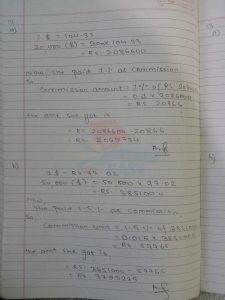 a)
1$ = 104.33
20,000 ($) = 20000 × 104.33
= RS. 2086600
Now she paid 1% as commission
So
Commission amount = 1% of RS 2086600
= RS. 20866
the amt she got is
= RS. 2086600 - 20866
= RS. 2065734
Ans
b)
1 $ = RS. 77.02
50,000 ($) = 50,000 × 77.02
= RS. 3851000
She paid 1.5% as commission
So
Commission amt = 1.5% of 3851000
= 0.015 × 3851000
= RS 57765
the amt she got is
= RS. 3851000 - 57765
= RS. 3793235
Ans